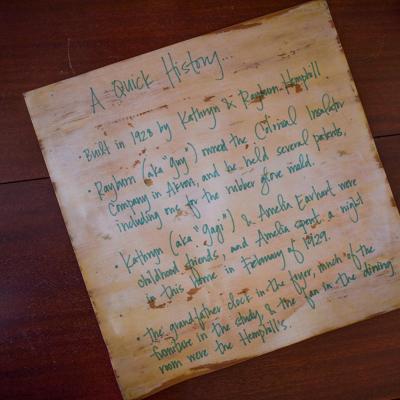 A Quick History...
· Built in 1928 by Kathryn & Rayburn Hemphill
· Rayburn (aka "guy") owned the Colonial Insulator
Company in Akron, and he held several patents,
including one for the rubber glove mold.
· Kathryn (aka "gagi") & Amelia Earhart were
childhood friends, and Amelia spent a night
in this home in February of 1929.
· the grandfather clock in the foyer, much of the
furniture in the study, & the fan in the dining
room were the Hemphill's.